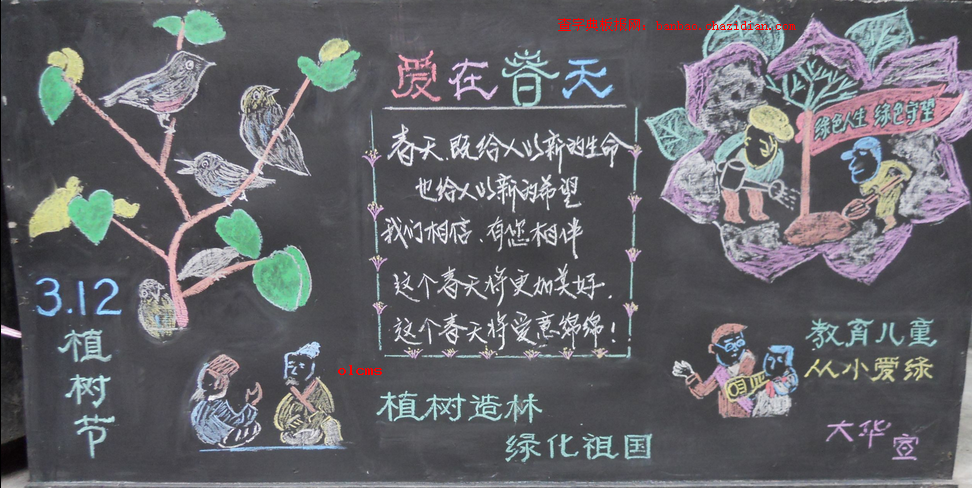 爱在春天
春天,既给人以新的生命
也给人以新的希望
我们相信,有您相伴
这个春天将更加美好,
这个春天将爱意绵绵!
绿色人生 绿色守望
3.12
植树节
植树造林
绿化祖国
教育儿童
从小爱绿
大华宣